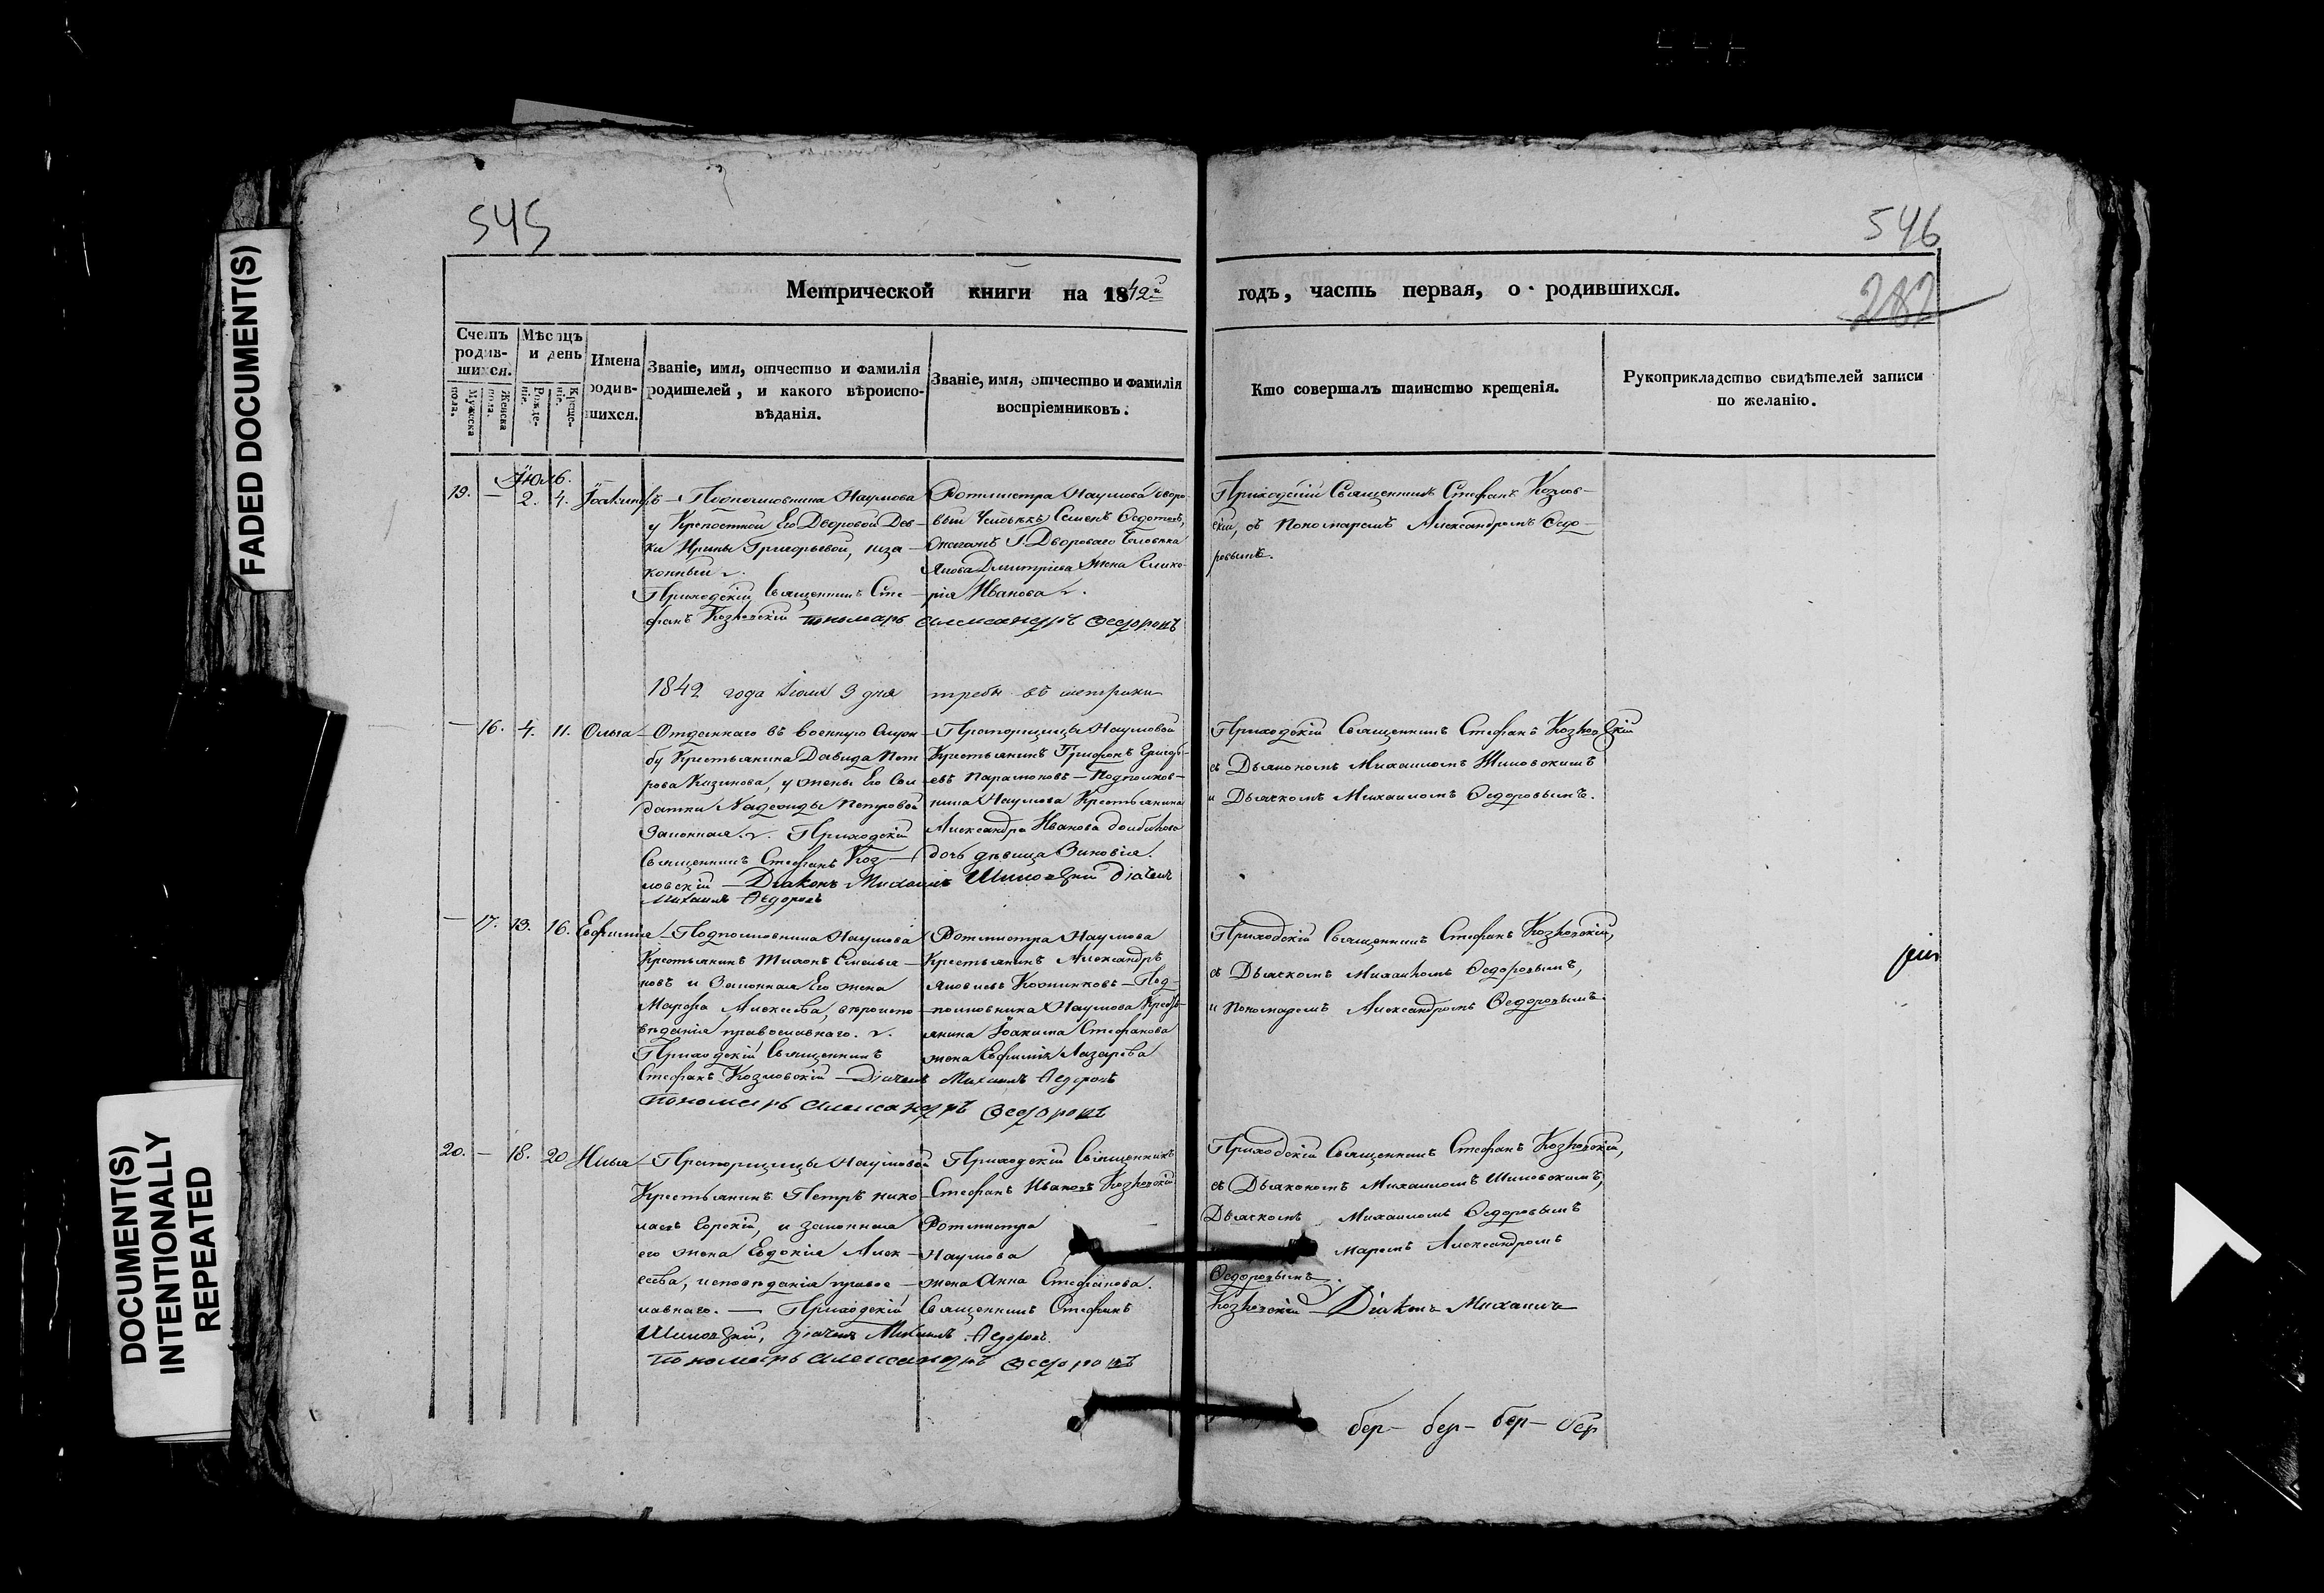 FADED DOCUMENT(S)
DOCUMENT(S)
INTENTIONALLY
REPEATED
545
546
282
Метрической книги на 1842й
годъ, часть первая, о родившихся.
Счетъ родив-шихся.
Мужеска пола.
Женска пола.
Мѣсяцъ и день
Рожде-нія.
Креще-нія.
Имена родив-шихся.
Званіе, имя, отчество и фамилія родителей, и какого вѣроиспо-вѣданія.
Званіе, имя, отчество и фамилія воспріемниковъ.
Кто совершалъ таинство крещенія.
Рукоприкладство свидѣтелей записи по желанію.
19. — 2. 4.
Подполковника Наумова
у Крепостной Его Дворовой Дев-
ки Ирины Григорьевой, неза-
конный
Приходскій Священникъ Сте-
фанъ Козловскій пономарь Александръ Ѳедоровъ
Ротмистра Наумова дворо-
вый Человѣкъ Семенъ Ѳедотовъ,
Дворового Человѣка
Дмитріева жена
рія Иванова
Приходскій Священникъ Стефанъ Козлов-
скій, съ Пономаремъ Александромъ Ѳедо-
ровымъ.
1842 года Іюля 3 дня
— 16. 4. 11. Ольга
Отданнаго въ военную служ-
бу Крестьянина Давида Пет-
рова, у жены Его Сол-
датки Надежды Петровой
Законная. Приходскій
Священникъ Стефанъ Коз-
ловскій — Діаконъ Михаилъ Шиповскій дьячекъ
Михаилъ Ѳедоровъ
Прапорщицы Наумовой
Крестьянинъ Трифонъ Григорь-
евъ Парамоновъ — Подполков-
ника Наумова Крестьянина
Александра Иванова
дочь дѣвица Зиновія.
Приходскій Священникъ Стефанъ Козловскій
съ Дьякономъ Михаиломъ Шиповскимъ
и Дьячкомъ Михаиломъ Ѳедоровымъ.
— 17. 13. 16. Евфимія
Подполковника Наумова
Крестьянинъ Емелья-
новъ и Законная Его жена
Марфа Алексѣева, вѣроиспо-
вѣданія православнаго.
Приходскій Священникъ
Стефанъ Козловскій — Дьячекъ Михаилъ Ѳедоровъ
пономарь Александръ Ѳедоровъ
Ротмистра Наумова
Крестьянинъ Александръ
Яковлевъ — Под-
полковника Наумова Кресть-
янина Іоакима Стефанова
жена Евфимія Лазарева
Приходскій Священникъ Стефанъ Козловскій,
съ Дьячкомъ Михаиломъ Ѳедоровымъ,
и Пономаремъ Александромъ Ѳедоровымъ.
20. — 18. 20 Илья
Прапорщицы Наумовой
Крестьянинъ Петръ Нико-
лаевъ, и законная
его жена Евдокія Алек-
сѣева, исповѣданія правос-
лавнаго. — Приходскій Священникъ Стефанъ
Козловскій — Діаконъ Михаилъ
Шиповскій, дьячекъ Михаилъ Ѳедоровъ.
пономарь Александръ Ѳедоровъ
Приходскій Священникъ
Стефанъ Ивановъ Козловскій
Ротмистра
Наумова
жена Анна Стефанова.
Приходскій Священникъ Стефанъ Козловскій,
съ Дьякономъ Михаиломъ Шиповскимъ,
Дьячкомъ Михаиломъ Ѳедоровымъ
маремъ Александромъ
Ѳедоровымъ.
бер- бер- бер- бер